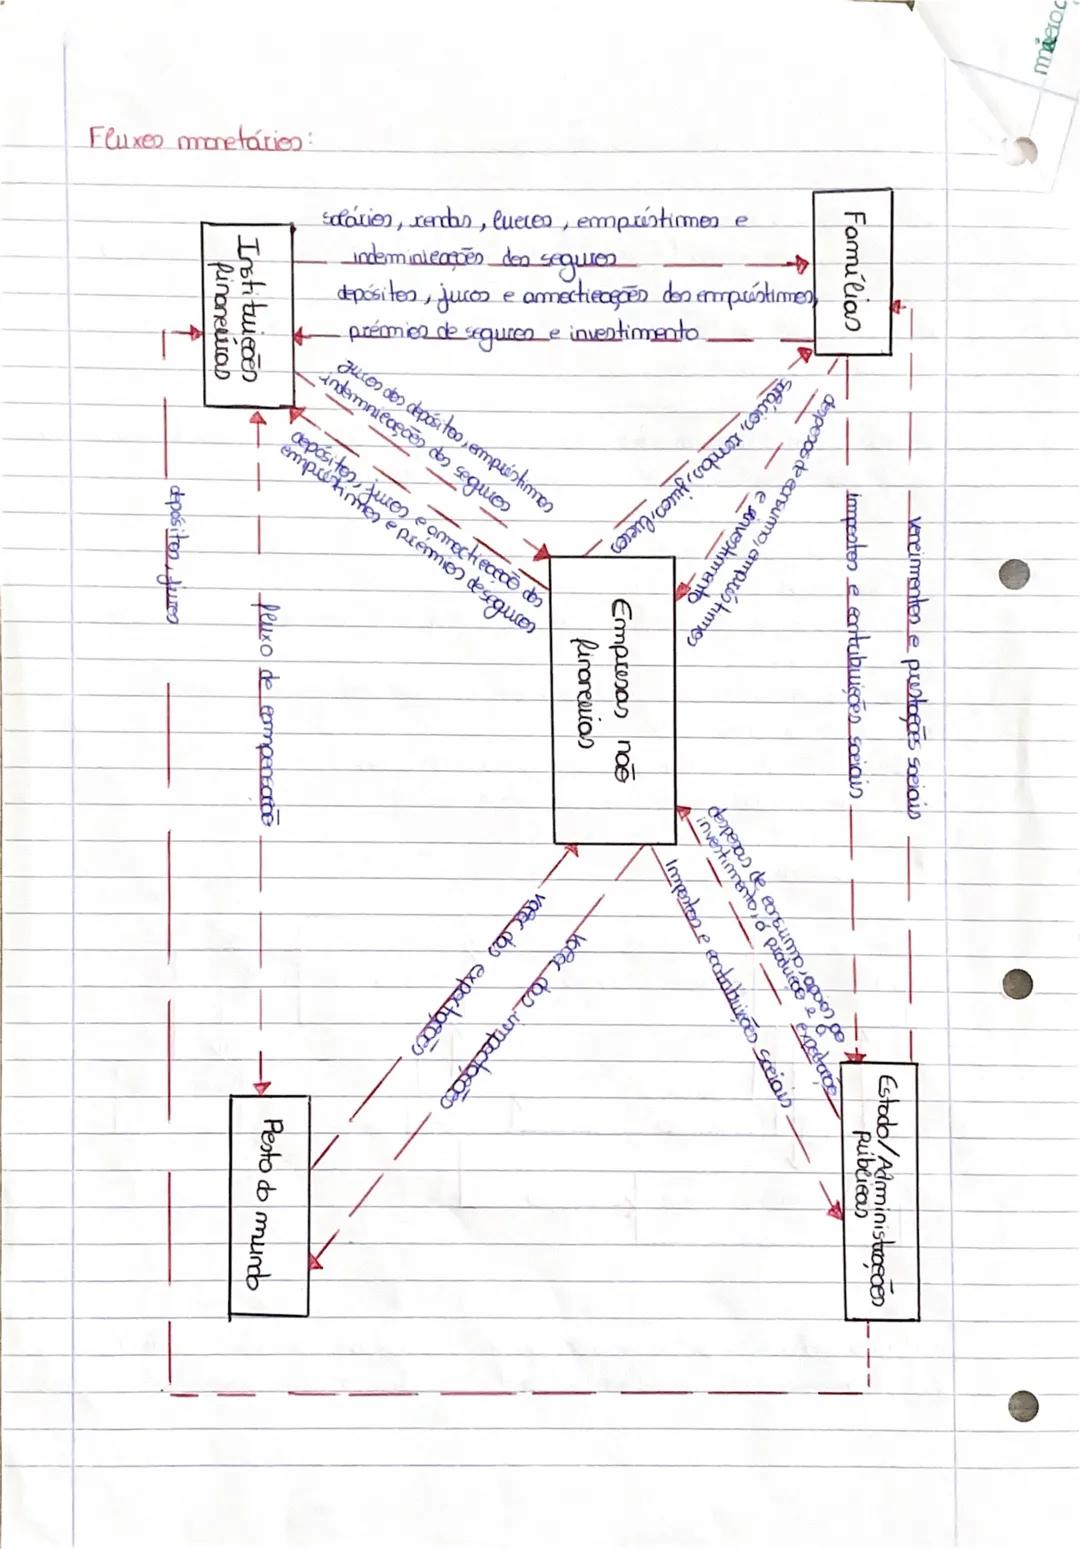 Fluxos monetários:
Famílias
salários, rendas, lucros, empréstimos e
indeminicações dos seguros
depósitos, juros e amortizações dos empréstimos,
prémios de seguros e investimento
Instituições
financeiras
vencimentos e prestações sociais
impostos e contribuições sociais
despesas de consumo, empréstimos
e investimento
salários, rendas, juros, lucros
juros dos depósitos, empréstimos
indemnizações dos seguros
depósitos, juros e amortização dos
empréstimos e prémios de seguros
Empresas não
financeiras
despesas de consumo, apoios ao
investimento, à produção e à exportação
Impostos e contribuições sociais
Estado/Administrações
Públicas
valor das importações
valor das exportações
fluxo de compensação
Resto do mundo
depósitos, juros